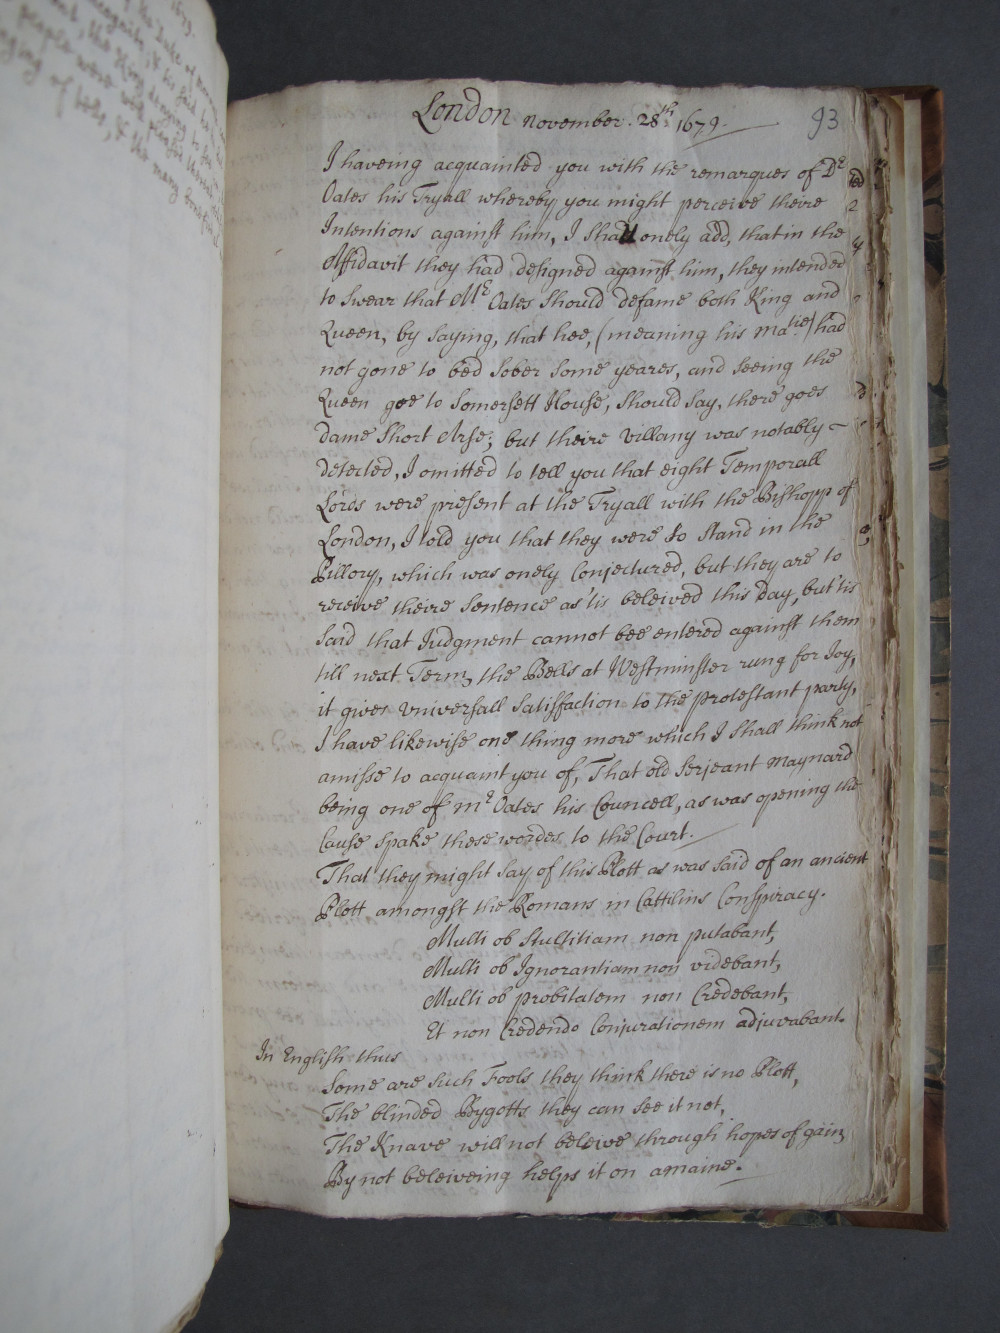 London November. 28th 1679.
93
I haveing acquainted you with the remarques of Dr
Oates his Tryall whereby you might perceive theire
Intentions against him, I shall onely add, that in the
Affidavit they had designed against him, they intended
to swear that Mr Oates should defame both King and
Queen, by saying, that hee, (meaning his Matie) had
not gone to bed sober some yeares, and seeing the
Queen goe to Somersett House, should say, there goes
dame Short Arse; but theire villany was notably
detected, I omitted to tell you that eight Temporall
Lords were present at the Tryall with the Bishopp of
London, I told you that they were to stand in the
Pillory, which was onely Conjectured, but they are to
receive theire Sentence as 'tis beleived this day, but 'tis
said that Judgment cannot bee entered against them
till next Term, the Bells at Westminster rung for Joy,
it gives Universall satisfaction to the protestant party,
I have likewise one thing more which I shall think not
amisse to acquaint you of, That old Serjeant Maynard
being one of Mr Oates his Councell, as was opening the
Cause spake these wordes to the Court.
That they might say of this Plott as was said of an ancient
Plott amongst the Romans in Cattilins Conspiracy.
Multi ob stultitiam non putabant,
Multi ob Ignorantiam non videbant,
Multi ob probitatem non Credebant,
Et non Credendo Conjurationem adjuvabant.
In English thus
Some are such Fools they think there is no Plott,
The blinded Bygotts they can see it not,
The Knave will not beleive through hopes of gain,
By not beleiveing helps it on amaine.